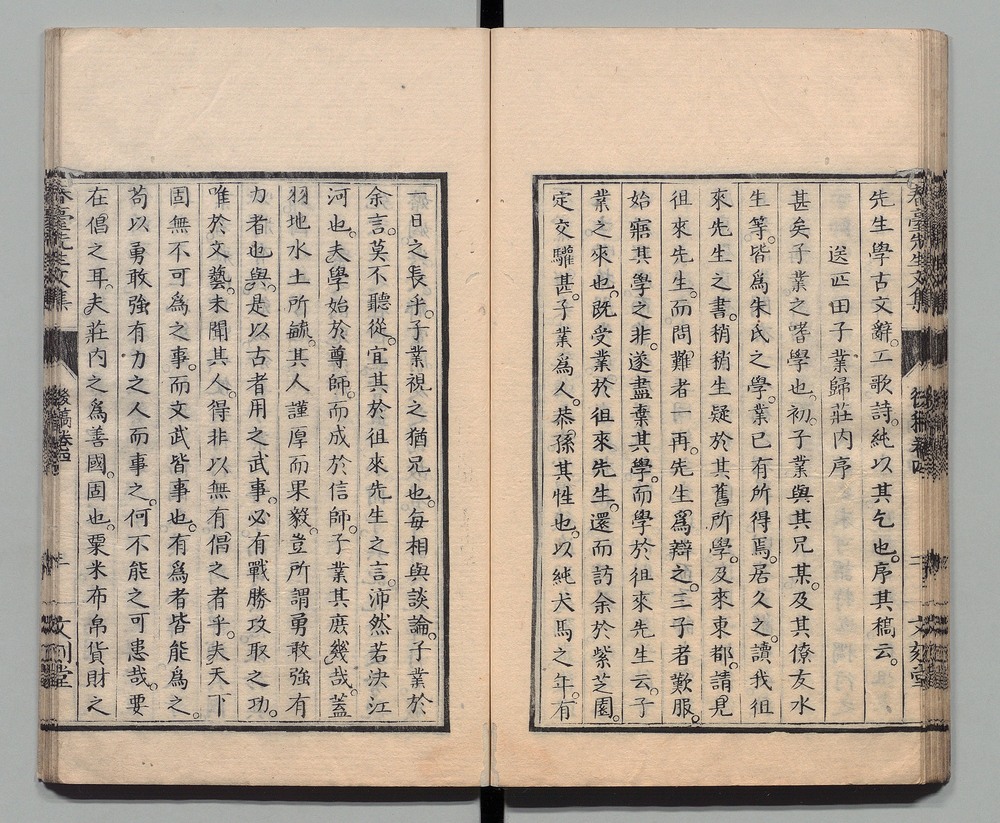 先生學古文辭。工歌詩。純以其乞也。序其稿云。
送疋田子業歸莊内序
甚矣子業之嗜學也。初子業與其兄某。及其僚友水
生等。皆爲朱氏之學。業已有所得焉。居久之。讀我徂
來先生之書。稍稍生疑於其舊所學。及來東都。請見
徂來先生。而問難者一再。先生爲辯之。三子者歎服。
始寤其學之非。遂盡棄其學。而學於徂來先生云。子
業之來也。既受業於徂來先生。還而訪余於紫芝園。
定交驩甚。子業爲人。恭孫其性也。以純犬馬之年。有
一日之長乎。子業視之猶兄也。每相與談論。子業於
余言。莫不聽從。宜其於徂來先生之言。沛然若決江
河也。夫學始於尊師。而成於信師。子業其庶幾哉。蓋
羽地水土所毓。其人謹厚而果毅。豈所謂勇敢強有
力者也與。是以古者用之武事。必有戰勝攻取之功。
唯於文藝。未聞其人。得非以無有倡之者乎。夫天下
固無不可爲之事。而文武皆事也。有爲者皆能爲之。
苟以勇敢強有力之人而事之。何不能之可患哉。要
在倡之耳。夫莊内之爲善國。固也。粟米布帛貨財之
春臺先生文集
後稿卷四